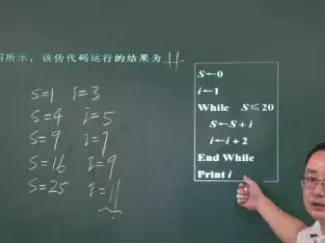 所示，该伪代码运行的结果为 11.
S=1 i=3
S=4 i=5
S=9 i=7
S=16 i=9
S=25 i=11
S←0
i←1
While S≤20
S←S+i
i←i+2
End While
Print i